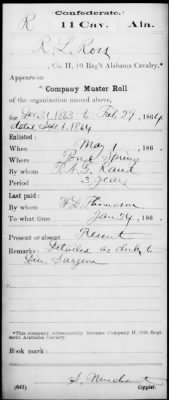 Confederate.
R 11 Cav. Ala.
R. L. Ross
, Co. H, 10 Reg't Alabama Cavalry.*
Appears on
Company Muster Roll
of the organization named above,
for Dec 31, 1863 to Feb 29, 1864
dated Sept 1, 1864
Enlisted:
When May 1, 186 .
Where Pond Spring
By whom
Period 3 years
Last paid:
By whom Thomason
To what time Jan 24, 186 .
Present or absent Present
Remarks: Detailed as
Surgeon
*This company subsequently became Company H, 11th Regiment Alabama Cavalry.
Book mark:
(642) Copyist.